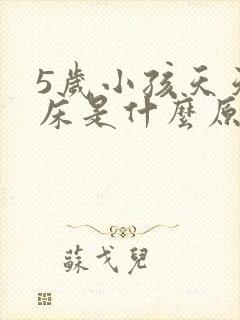 5歲小孩天天
床是什麼原
蘇戈兒